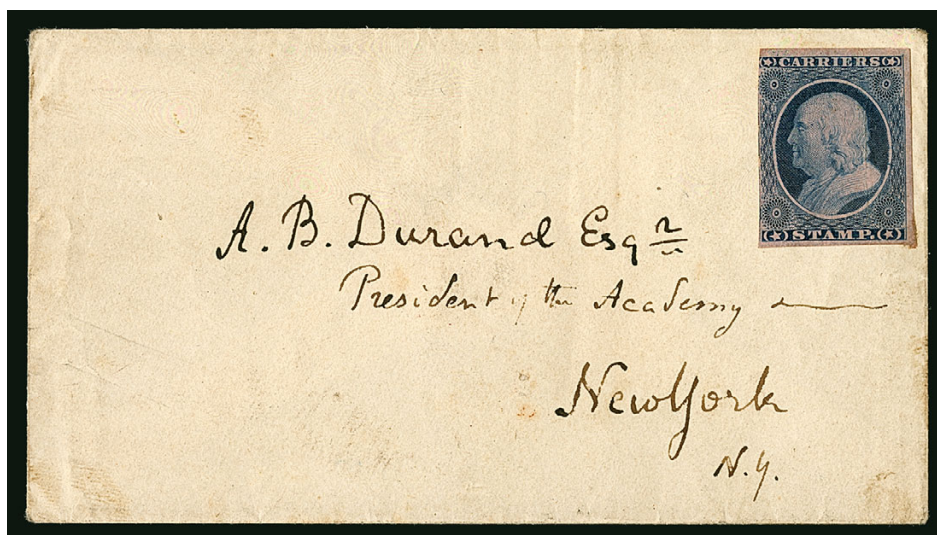 CARRIERS
STAMP.
A. B. Durand Esqr
President of the Academy
New York
N.Y.